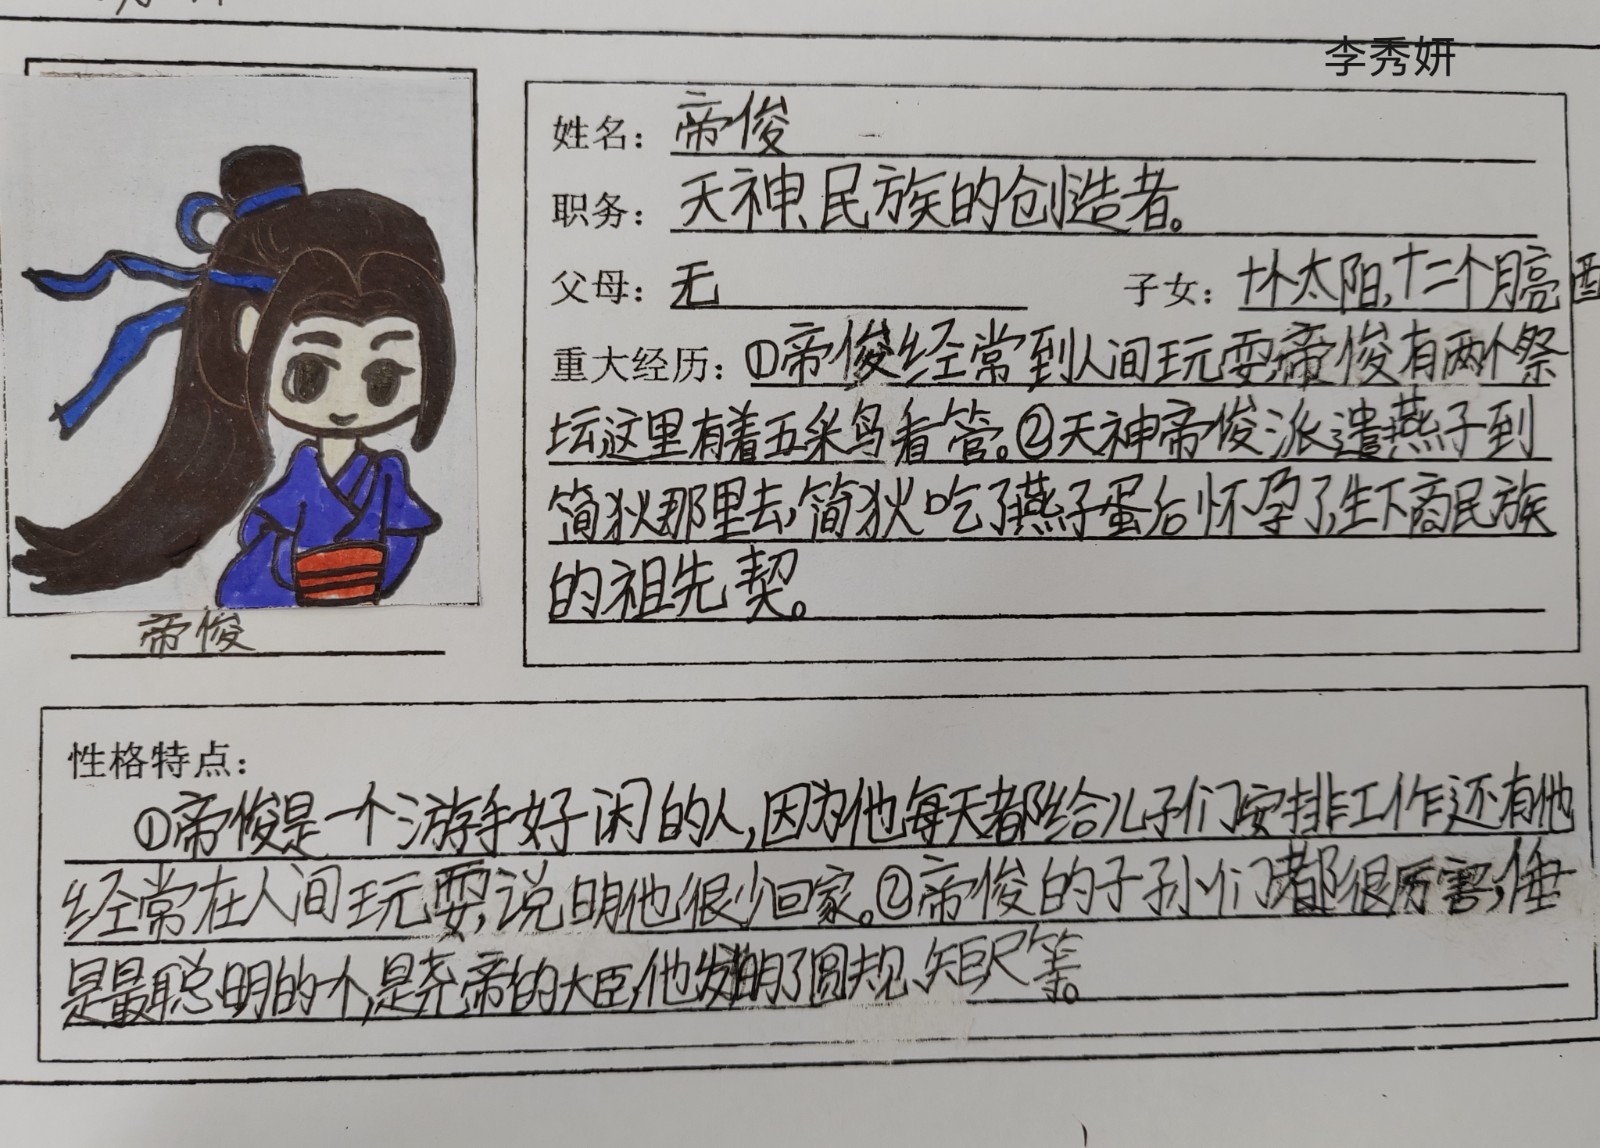 李秀妍
姓名：帝俊
职务：天神、民族的创造者。
父母：无 子女：十个太阳，十二个月亮
重大经历：①帝俊经常到人间玩耍，帝俊有两个祭
坛这里有着五采鸟看管。②天神帝俊派遣燕子到
简狄那里去，简狄吃了燕子蛋后怀孕了，生下商民族
的祖先契。
帝俊
性格特点：
①帝俊是一个游手好闲的人，因为他每天都给儿子们安排工作还有他
经常在人间玩耍，说明他很少回家。②帝俊的子孙们都很厉害，倕
是最聪明的个，是尧帝的大臣，他发明了圆规、矩尺等。